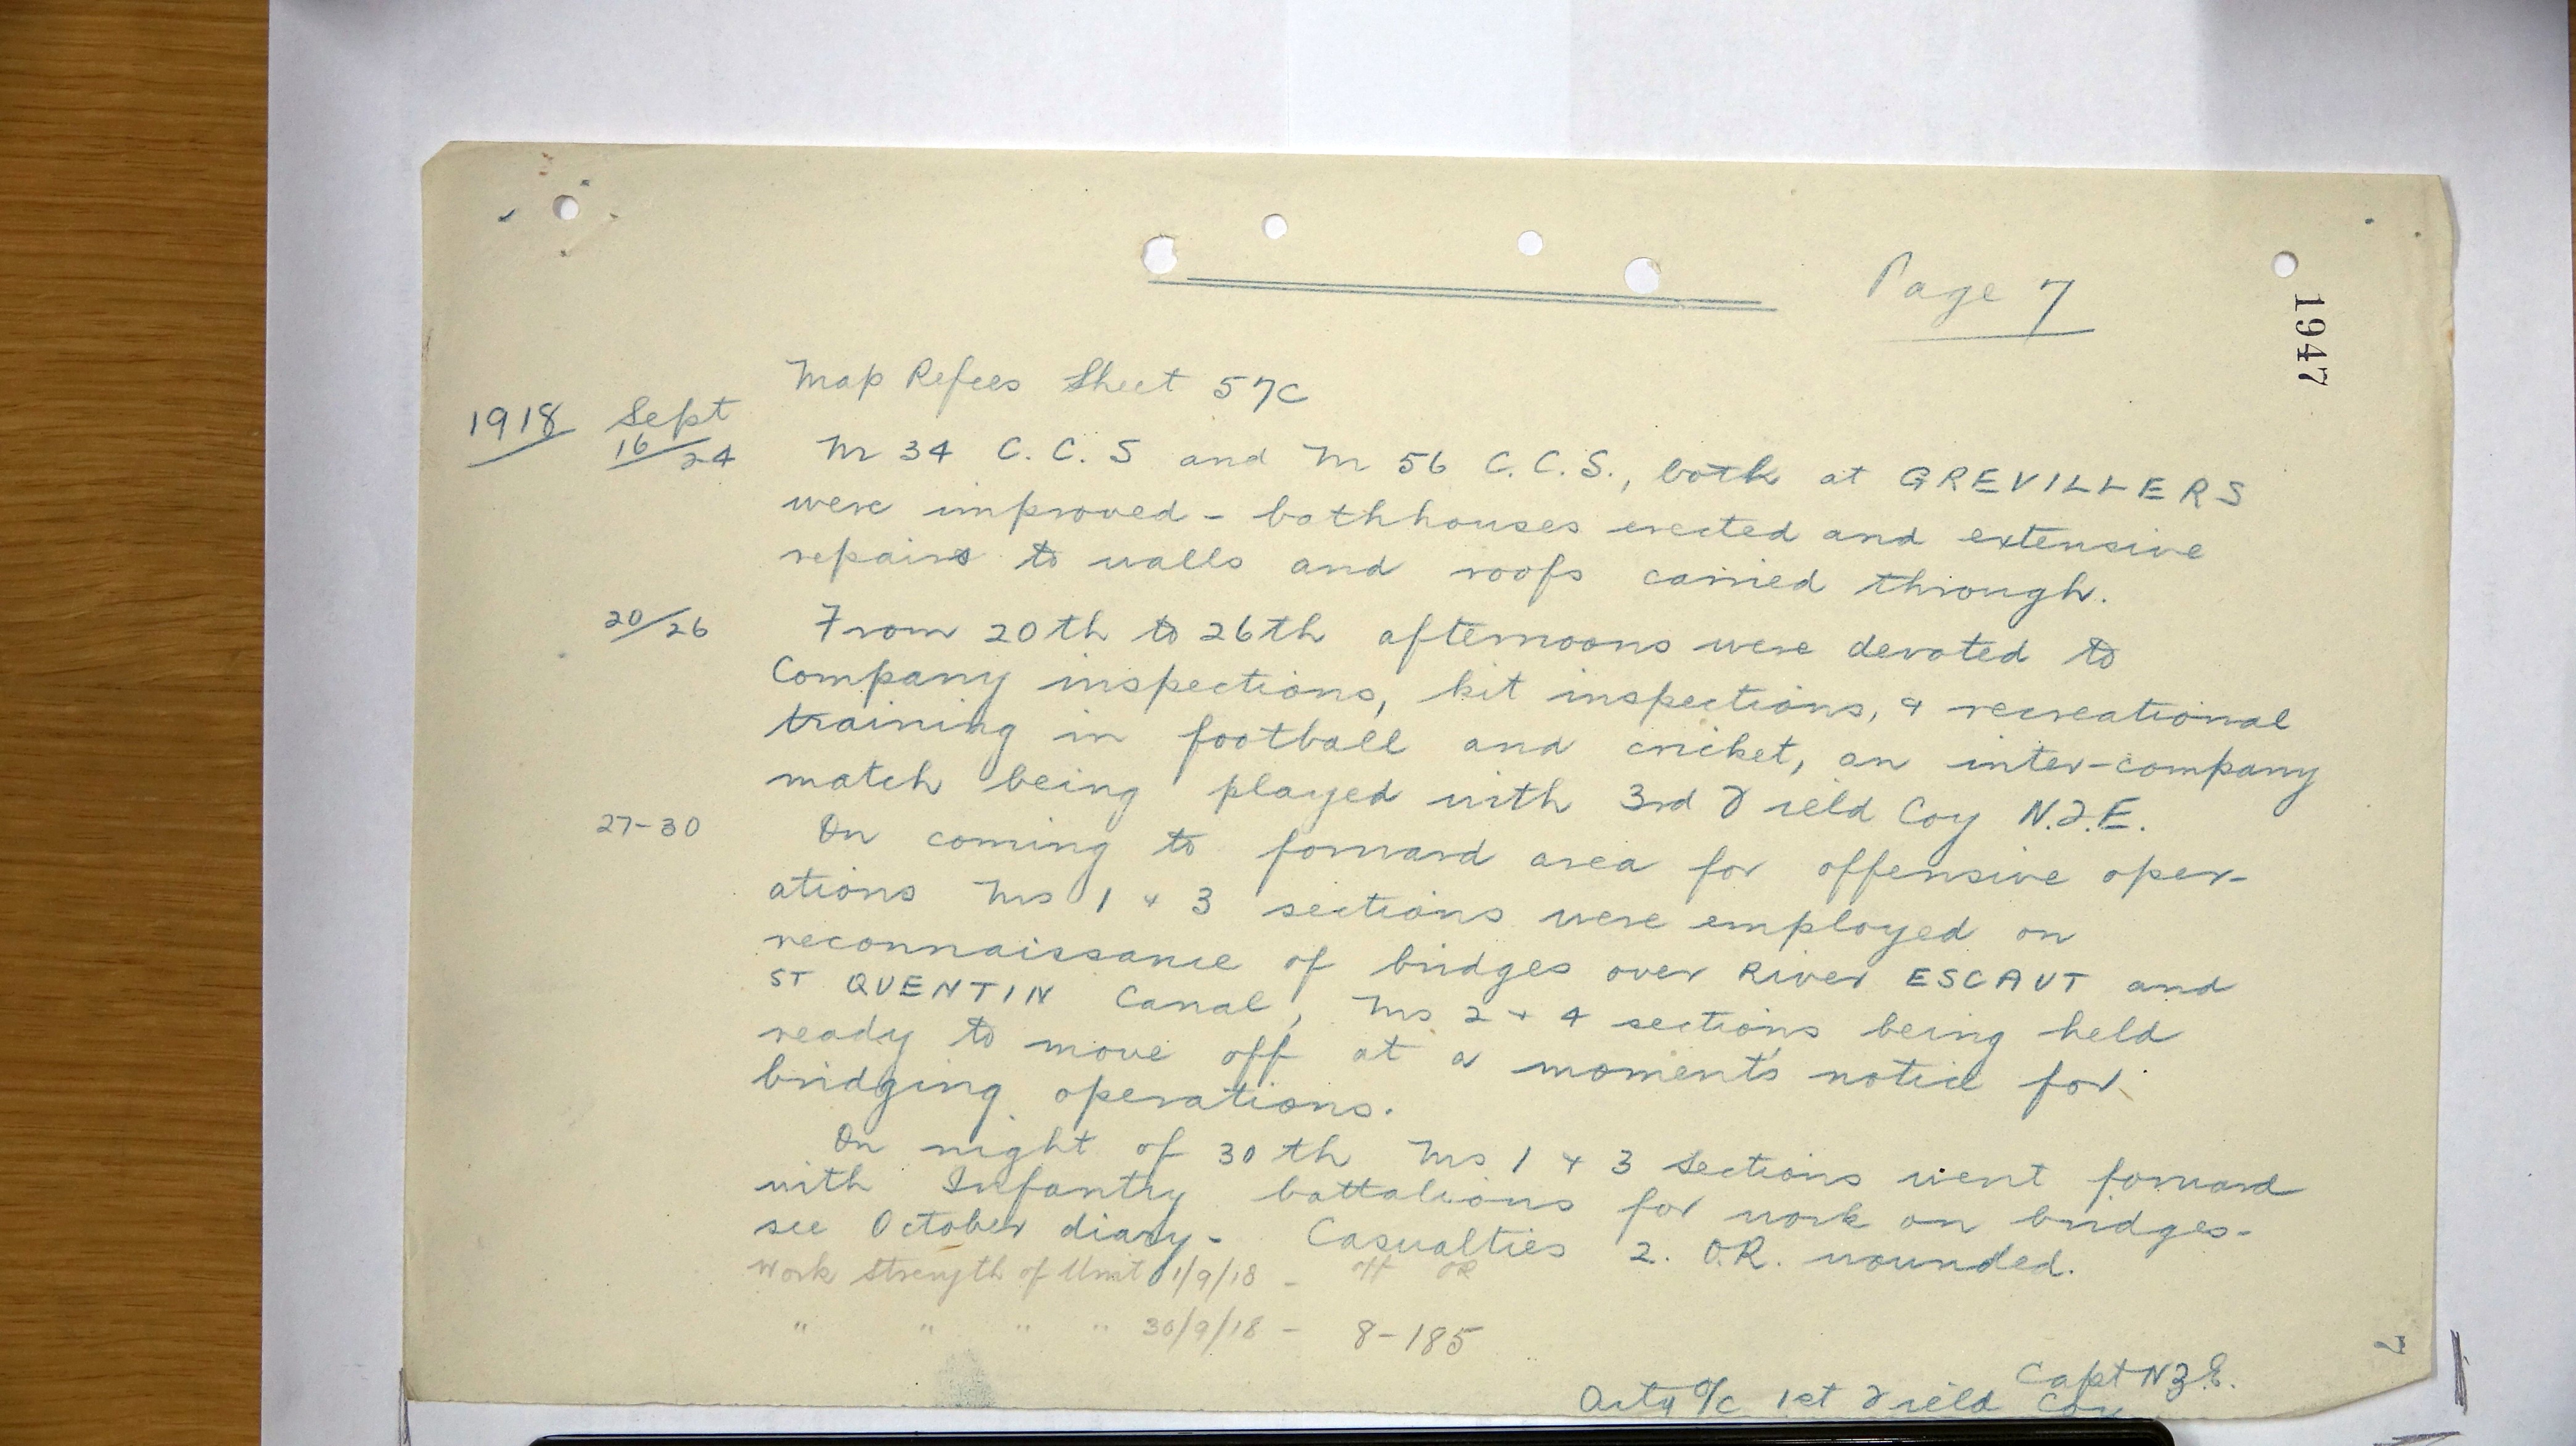 Page 7
1947
Map Refces Sheet 57C
1918 Sept
16/24 No 34 C.C.S and No 56 C.C.S., both at GREVILLERS
were improved - bathhouses erected and extensive
repairs to walls and roofs carried through.
20/26 From 20th to 26th afternoons were devoted to
Company inspections, kit inspections, & recreational
training in football and cricket, an inter-company
match being played with 3rd Field Coy N.Z.E.
27-30 On coming to forward area for offensive oper-
ations Nos 1 & 3 sections were employed on
reconnaissance of bridges over River ESCAUT and
ST QUENTIN Canal, Nos 2 & 4 sections being held
ready to move off at a moment's notice for
bridging operations.
On night of 30th Nos 1 & 3 Sections went forward
with Infantry battalions for work on bridges-
see October diary - Casualties 2. O.R. wounded.
Work Strength of Unit 1/9/18 - off OR
" " " " 30/9/18 - 8-185
7
Capt NZE.
O/C 1st Field Coy